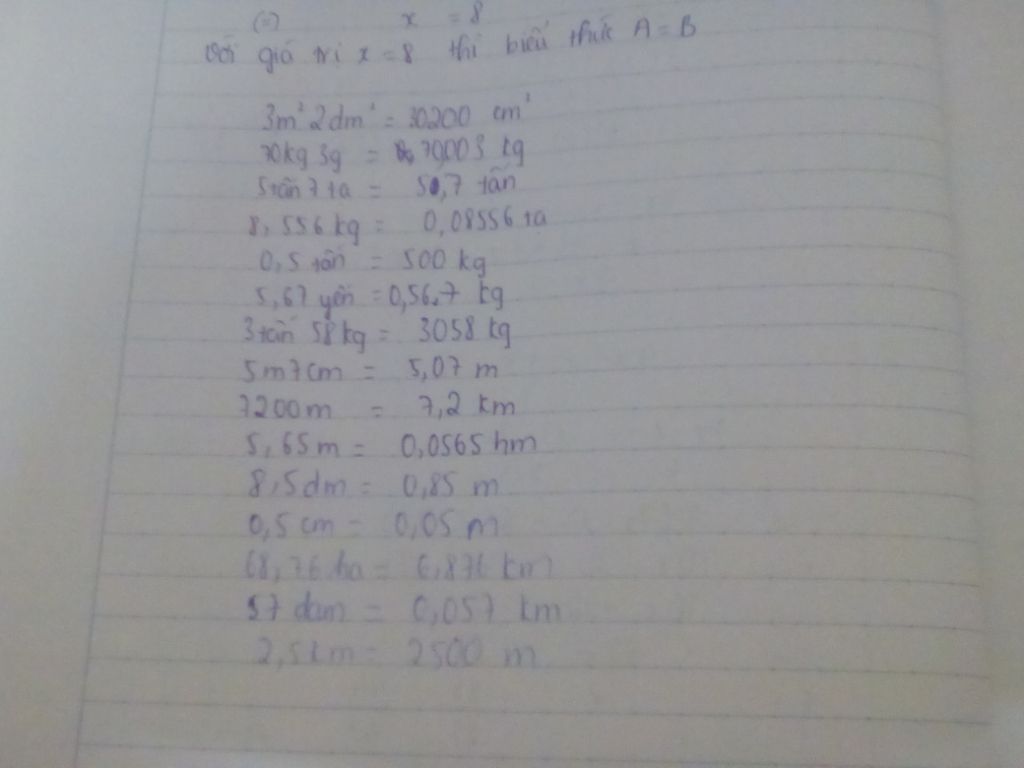 (=) x = 8
Với giá trị x = 8 thì biểu thức A = B
3m² 2dm² = 30200 cm²
70kg 3g = 70003 kg
5 tấn 7 tạ = 5,7 tấn
8,556 kg = 0,08556 tạ
0,5 tấn = 500 kg
5,67 yến = 0,56.7 kg
3 tấn 58 kg = 3058 kg
5m7cm = 5,07 m
7200m = 7,2 km
5,65m = 0,0565 hm
8,5dm = 0,85 m
0,5 cm = 0,05 m
68,76 ha = 6,876 km
57 dam = 0,057 km
2,5km = 2500 m